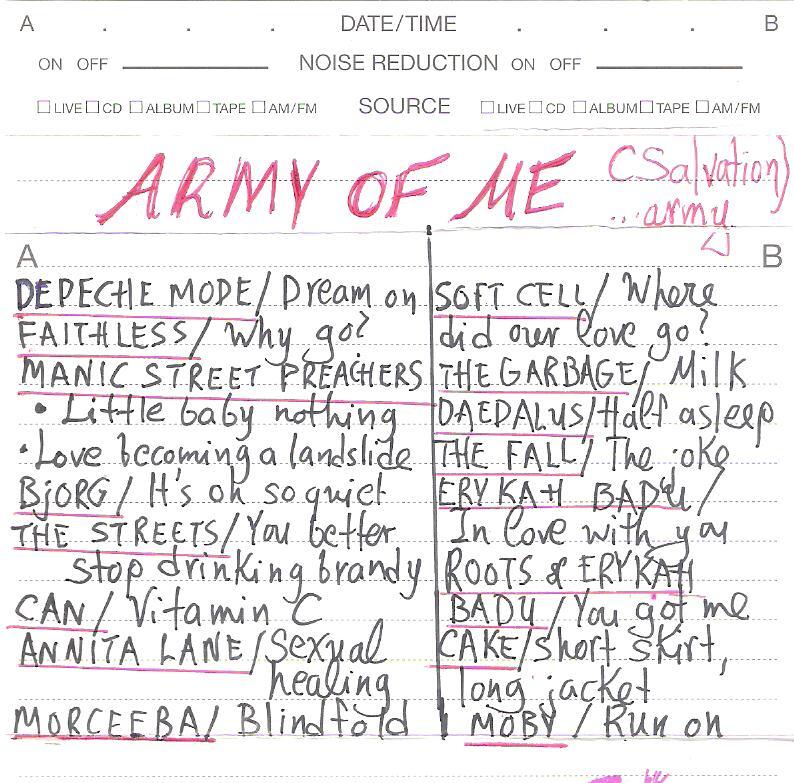 A DATE/TIME B
ON OFF NOISE REDUCTION ON OFF
LIVE CD ALBUM TAPE AM/FM SOURCE LIVE CD ALBUM TAPE AM/FM
ARMY OF ME (Salvation)
...army
A
DEPECHE MODE/ Dream on
FAITHLESS/ Why go?
MANIC STREET PREACHERS
• Little baby nothing
• Love becoming a landslide
BjORG/ It's oh so quiet
THE STREETS/ You better
stop drinking brandy
CAN/ Vitamin C
ANNITA LANE/ Sexual
healing
MORCEEBA/ Blindfold
B
SOFT CELL/ Where
did our love go?
THE GARBAGE/ Milk
DAEDALUS/ Half asleep
THE FALL/ The joke
ERYKAH BADU/
In love with you
ROOTS & ERYKAH
BADU/ You got me
CAKE/ short skirt,
long jacket
MOBY/ Run on